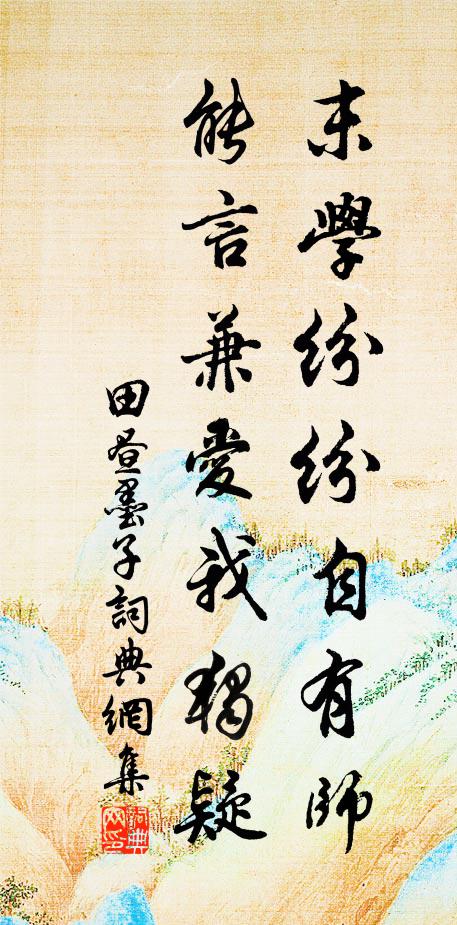 末學紛紛自有師
能言兼愛我獨疑
田晝墨子詞典網集
詞典
网印